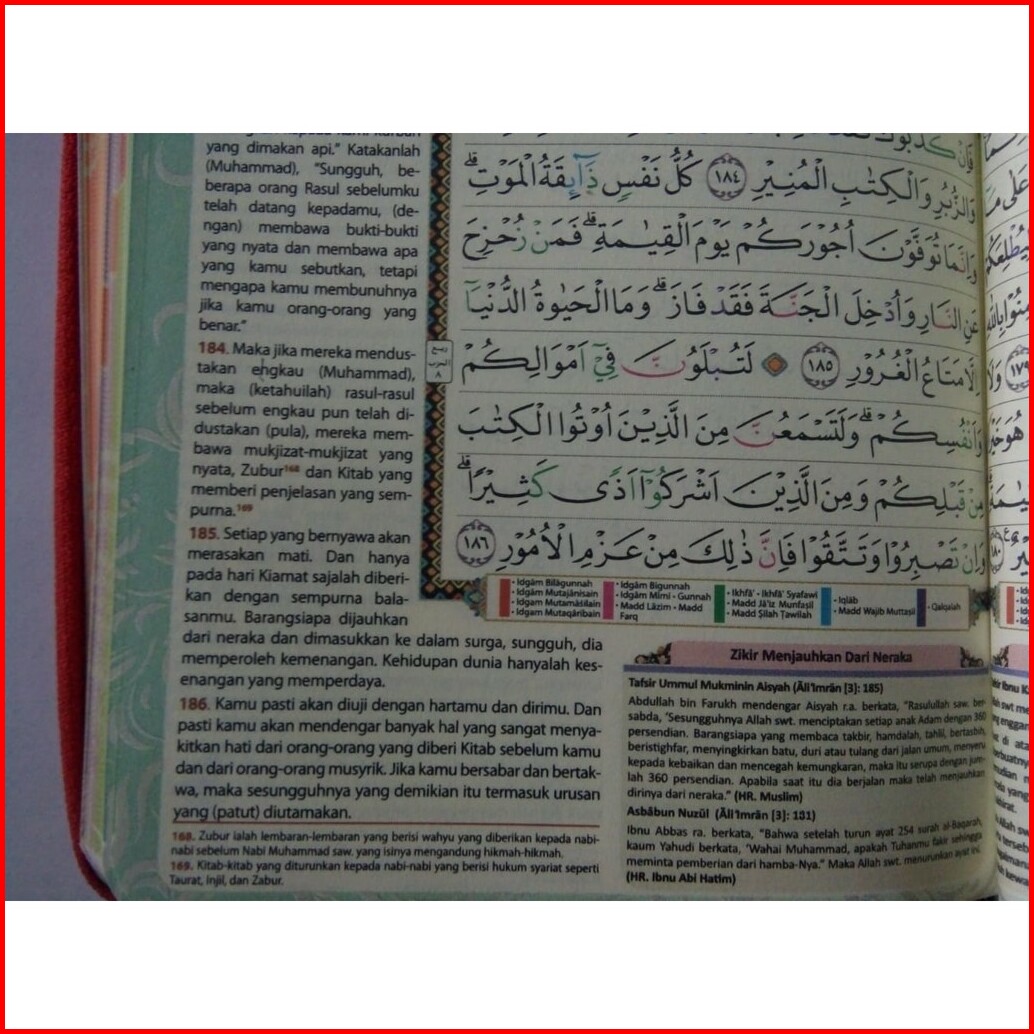 yang dimakan api." Katakanlah
(Muhammad), "Sungguh, be-
berapa orang Rasul sebelumku
telah datang kepadamu, (de-
ngan) membawa bukti-bukti
yang nyata dan membawa apa
yang kamu sebutkan, tetapi
mengapa kamu membunuhnya
jika kamu orang-orang yang
benar."
184. Maka jika mereka mendus-
takan engkau (Muhammad),
maka (ketahuilah) rasul-rasul
sebelum engkau pun telah di-
dustakan (pula), mereka mem-
bawa mukjizat-mukjizat yang
nyata, Zubur¹⁶⁸ dan Kitab yang
memberi penjelasan yang sem-
purna.¹⁶⁹
185. Setiap yang bernyawa akan
merasakan mati. Dan hanya
pada hari Kiamat sajalah diberi-
kan dengan sempurna bala-
sanmu. Barangsiapa dijauhkan
dari neraka dan dimasukkan ke dalam surga, sungguh, dia
memperoleh kemenangan. Kehidupan dunia hanyalah kes-
enangan yang memperdaya.
186. Kamu pasti akan diuji dengan hartamu dan dirimu. Dan
pasti kamu akan mendengar banyak hal yang sangat menya-
kitkan hati dari orang-orang yang diberi Kitab sebelum kamu
dan dari orang-orang musyrik. Jika kamu bersabar dan bertak-
wa, maka sesungguhnya yang demikian itu termasuk urusan
yang (patut) diutamakan.
168. Zubur ialah lembaran-lembaran yang berisi wahyu yang diberikan kepada nabi-
nabi sebelum Nabi Muhammad saw. yang isinya mengandung hikmah-hikmah.
169. Kitab-kitab yang diturunkan kepada nabi-nabi yang berisi hukum syariat seperti
Taurat, Injil, dan Zabur.
ربع
الحزب
٨
وَالزُّبُرِ وَالْكِتٰبِ الْمُنِيْرِ ١٨٤ كُلُّ نَفْسٍ ذَاۤىِٕقَةُ الْمَوْتِۗ
وَاِنَّمَا تُوَفَّوْنَ اُجُوْرَكُمْ يَوْمَ الْقِيٰمَةِۗ فَمَنْ زُحْزِحَ
عَنِ النَّارِ وَاُدْخِلَ الْجَنَّةَ فَقَدْ فَازَۗ وَمَا الْحَيٰوةُ الدُّنْيَآ
اِلَّا مَتَاعُ الْغُرُوْرِ ١٨٥ ۞ لَتُبْلَوُنَّ فِيْٓ اَمْوَالِكُمْ
وَاَنْفُسِكُمْۗ وَلَتَسْمَعُنَّ مِنَ الَّذِيْنَ اُوْتُوا الْكِتٰبَ
مِنْ قَبْلِكُمْ وَمِنَ الَّذِيْنَ اَشْرَكُوْٓا اَذًى كَثِيْرًاۗ
وَاِنْ تَصْبِرُوْا وَتَتَّقُوْا فَاِنَّ ذٰلِكَ مِنْ عَزْمِ الْاُمُوْرِ ١٨٦
• Idgām Bilāgunnah
• Idgām Mutajānisain
• Idgam Mutamāṡilain
• Idgam Mutaqāribain
• Idgām Bigunnah
• Idgām Mimi - Gunnah
• Madd Lāzim - Madd
Farq
• Ikhfā' - Ikhfā' Syafawi
• Madd Jā'iz Munfaṣil
• Madd Ṣilah Ṭawilah
• Iqlāb
• Madd Wajib Muttaṣil
• Qalqalah
Zikir Menjauhkan Dari Neraka
Tafsir Ummul Mukminin Aisyah (Āli 'Imrān [3]: 185)
Abdullah bin Farukh mendengar Aisyah r.a. berkata, "Rasulullah saw. ber-
sabda, 'Sesungguhnya Allah swt. menciptakan setiap anak Adam dengan 360
persendian. Barangsiapa yang membaca takbir, hamdalah, tahlil, bertasbih,
beristighfar, menyingkirkan batu, duri atau tulang dari jalan umum, menyeru
kepada kebaikan dan mencegah kemungkaran, maka itu serupa dengan jum-
lah 360 persendian. Apabila saat itu dia berjalan maka telah menjauhkan
dirinya dari neraka." (HR. Muslim)
Asbābun Nuzūl (Āli 'Imrān [3]: 181)
Ibnu Abbas ra. berkata, "Bahwa setelah turun ayat 254 surah al-Baqarah,
kaum Yahudi berkata, 'Wahai Muhammad, apakah Tuhanmu fakir sehingga
meminta pemberian dari hamba-Nya." Maka Allah swt. menurunkan ayat ini.
(HR. Ibnu Abi Hatim)